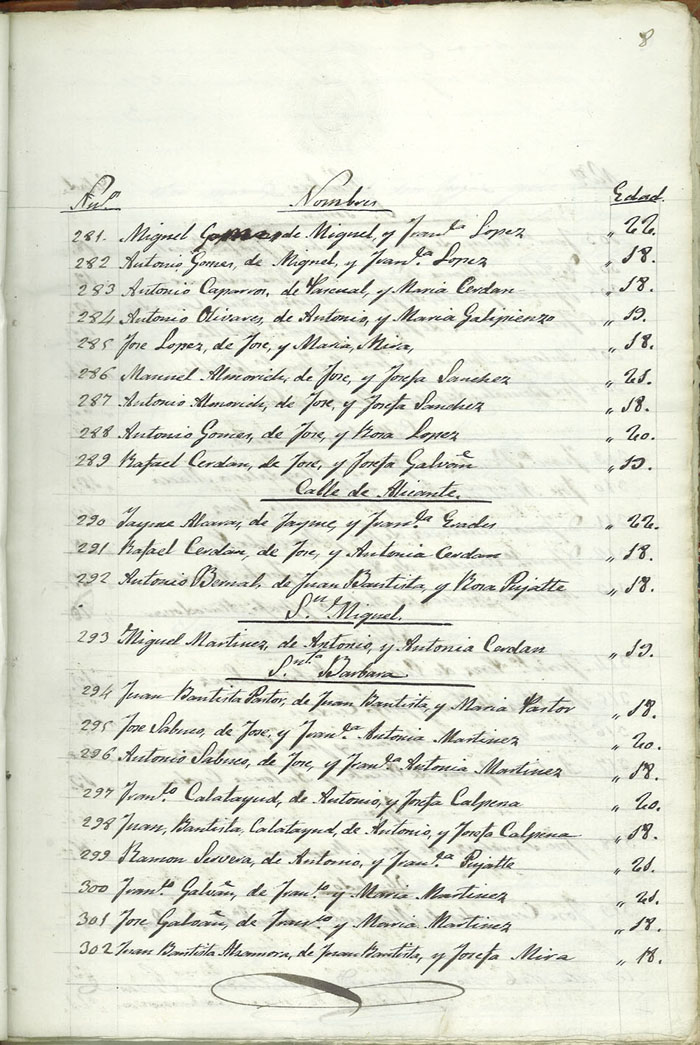 8
Num.º Nombres Edad.
281. Miguel Gomes de Miguel, y Fran.ca Lopez „ 22.
282 Antonio Gomes, de Miguel, y Fran.ca Lopez „ 18.
283 Antonio Caparros, de Pascual, y Maria Cerdan „ 18.
284 Antonio Olivares, de Antonio, y Maria Galipienzo „ 19.
285 Jose Lopez, de Jose, y Maria Mira, „ 18.
286 Manuel Almorich, de Jose, y Josefa Sanchez „ 21.
287 Antonio Almorich, de Jose, y Josefa Sanchez „ 18.
288 Antonio Gomes, de Jose, y Rosa Lopez „ 20.
289 Rafael Cerdan, de Jose, y Josefa Galvañ „ 19.
Calle de Alicante.
290 Jayme Alcaraz, de Jayme, y Fran.ca „ 22.
291 Rafael Cerdan, de Jose, y Antonia Cerdan „ 18.
292 Antonio Bernal, de Juan Bautista, y Rosa Pujalte „ 18.
S.n Miguel.
293 Miguel Martinez, de Antonio, y Antonia Cerdan „ 19.
S.nta Barbara
294 Juan Bautista Pastor, de Juan Bautista, y Maria Pastor „ 18.
295 Jose Sabuco, de Jose, y Fran.ca Antonia Martinez „ 20.
296 Antonio Sabuco, de Jose, y Fran.ca Antonia Martinez „ 18.
297 Fran.co Calatayud, de Antonio, y Josefa Calpena „ 20.
298 Juan Bautista Calatayud, de Antonio, y Josefa Calpena „ 18.
299 Ramon Servera, de Antonio, y Fran.ca Pujalte „ 21.
300 Fran.co Galvañ, de Fran.co y Maria Martinez „ 21.
301 Jose Galvañ, de Fran.co y Maria Martinez „ 18.
302 Juan Bautista Alzamora, de Juan Bautista, y Josefa Mira „ 18.